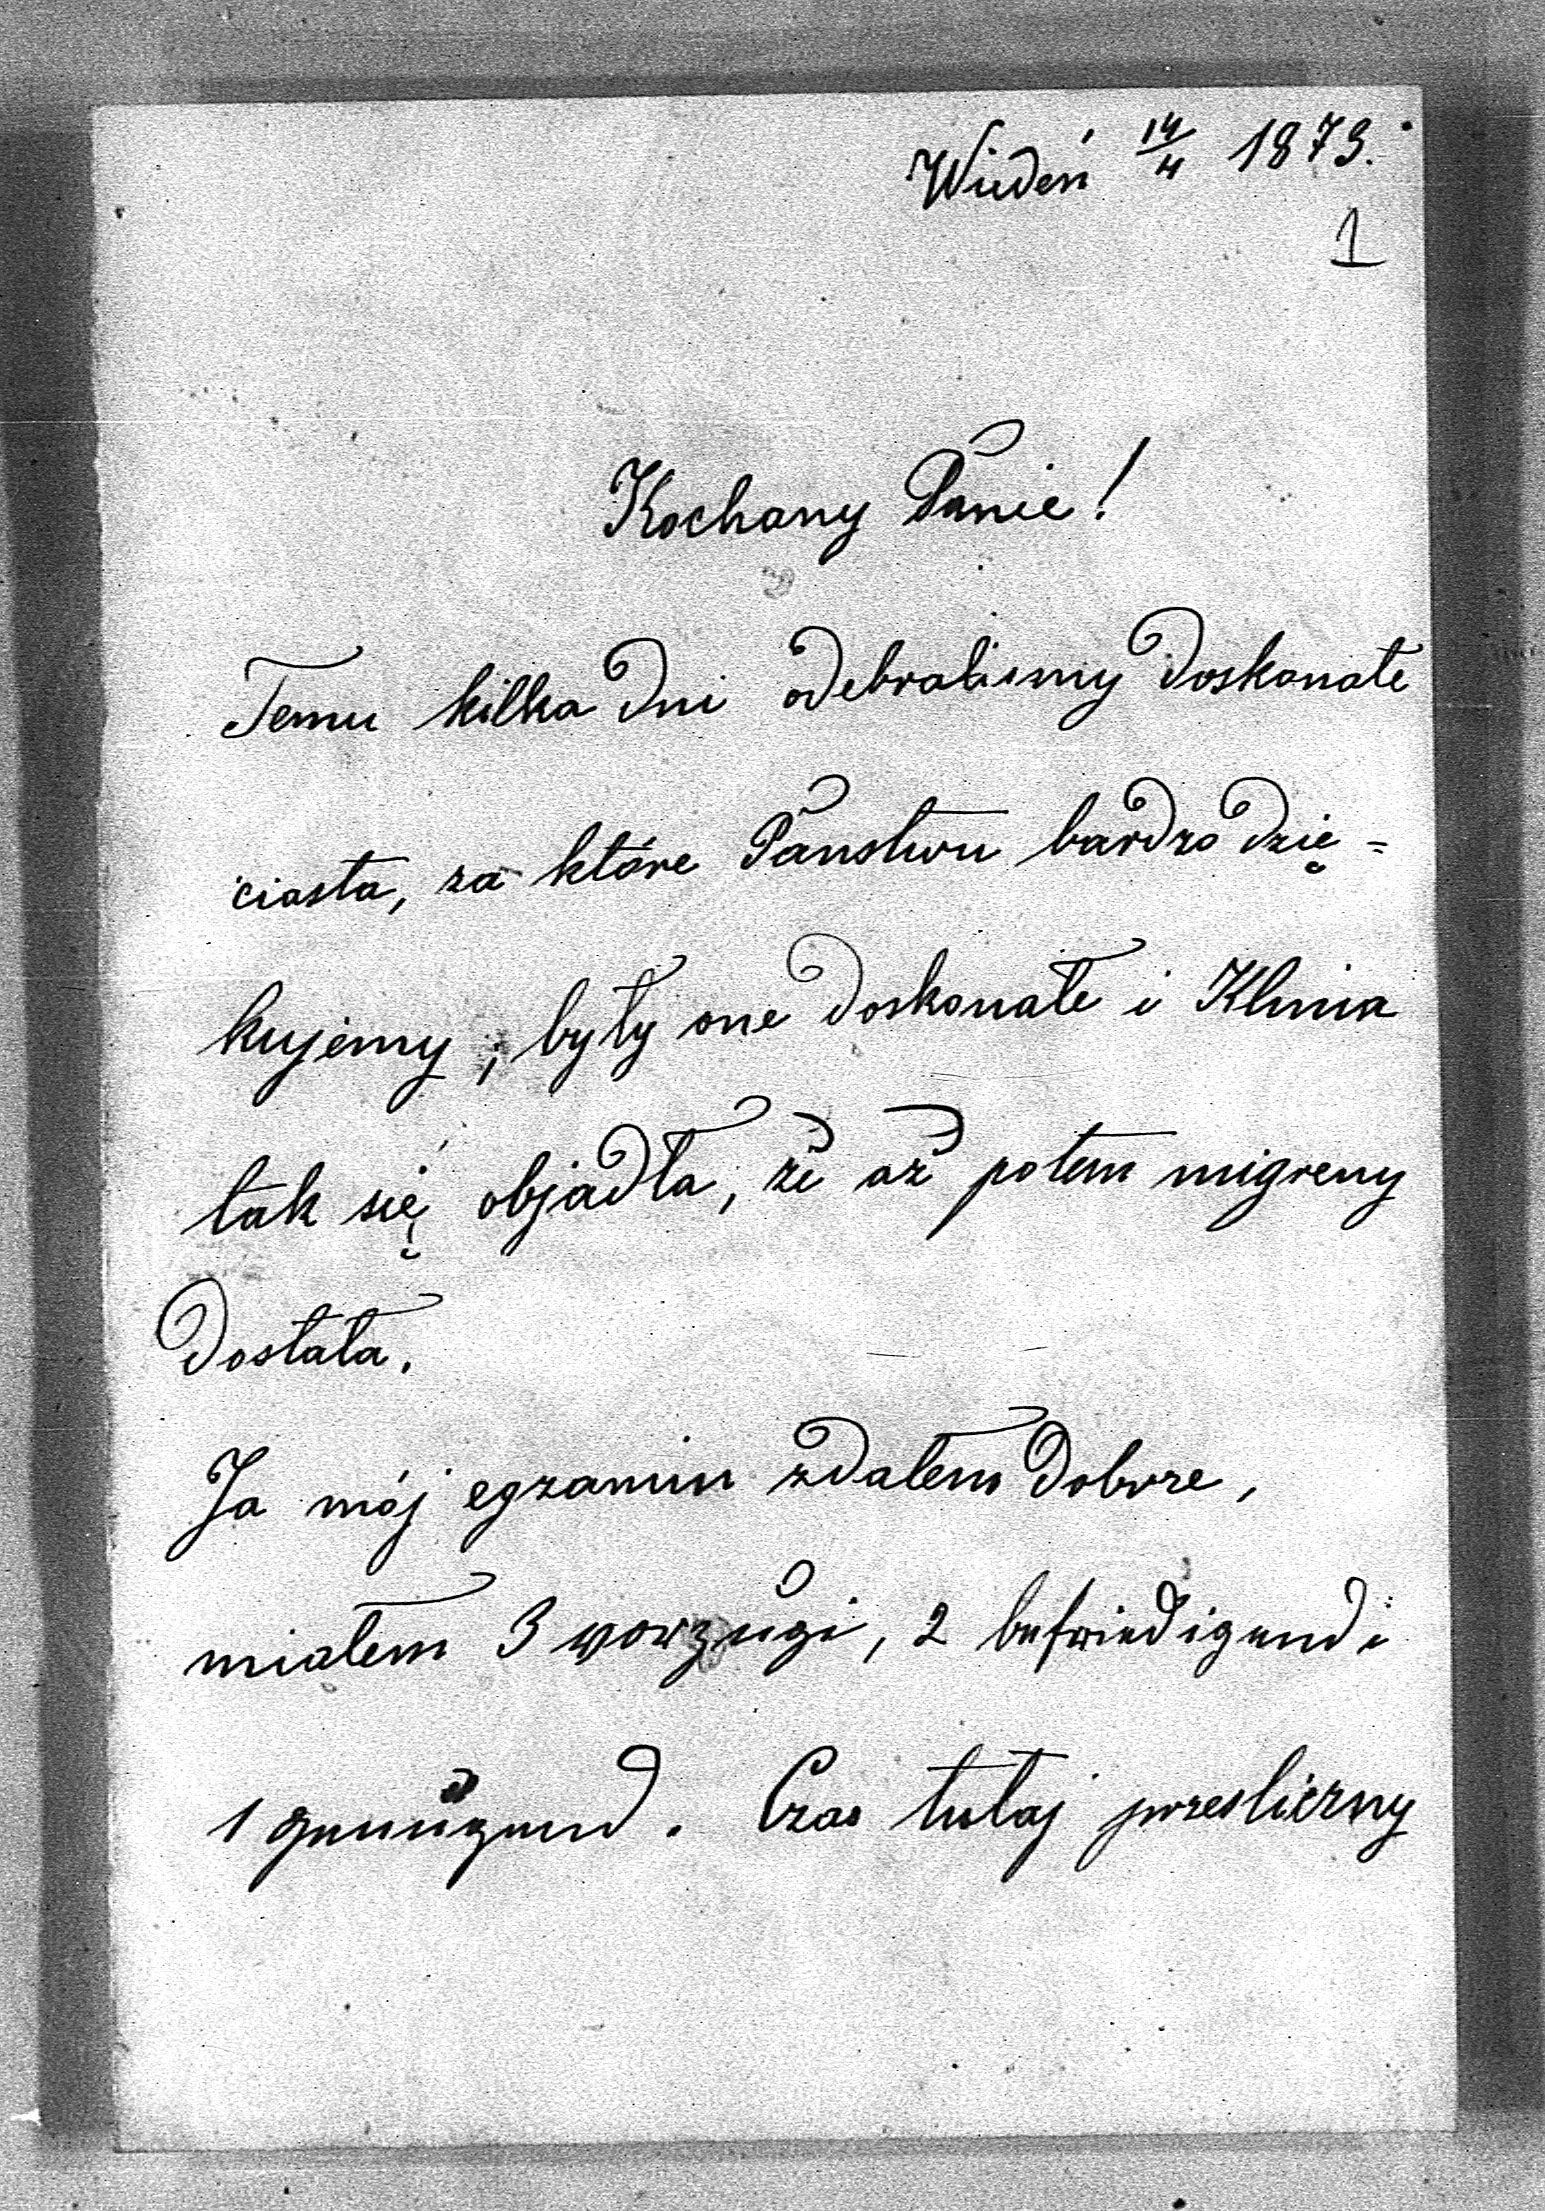 Wiedeń 14/4 1873.
1
Kochany Panie!
Temu kilka dni odebralismy doskonałe
ciasta, za które Państwu bardzo dzię=
kujemy; były one doskonałe i Klinia
tak się objadła, że aż potem migreny
dostała.
Ja mój egzamin zdałem dobrze,
miałem 3 vorzügi, 2 befriedigend i
1 genügend. Czas tutaj przesliczny